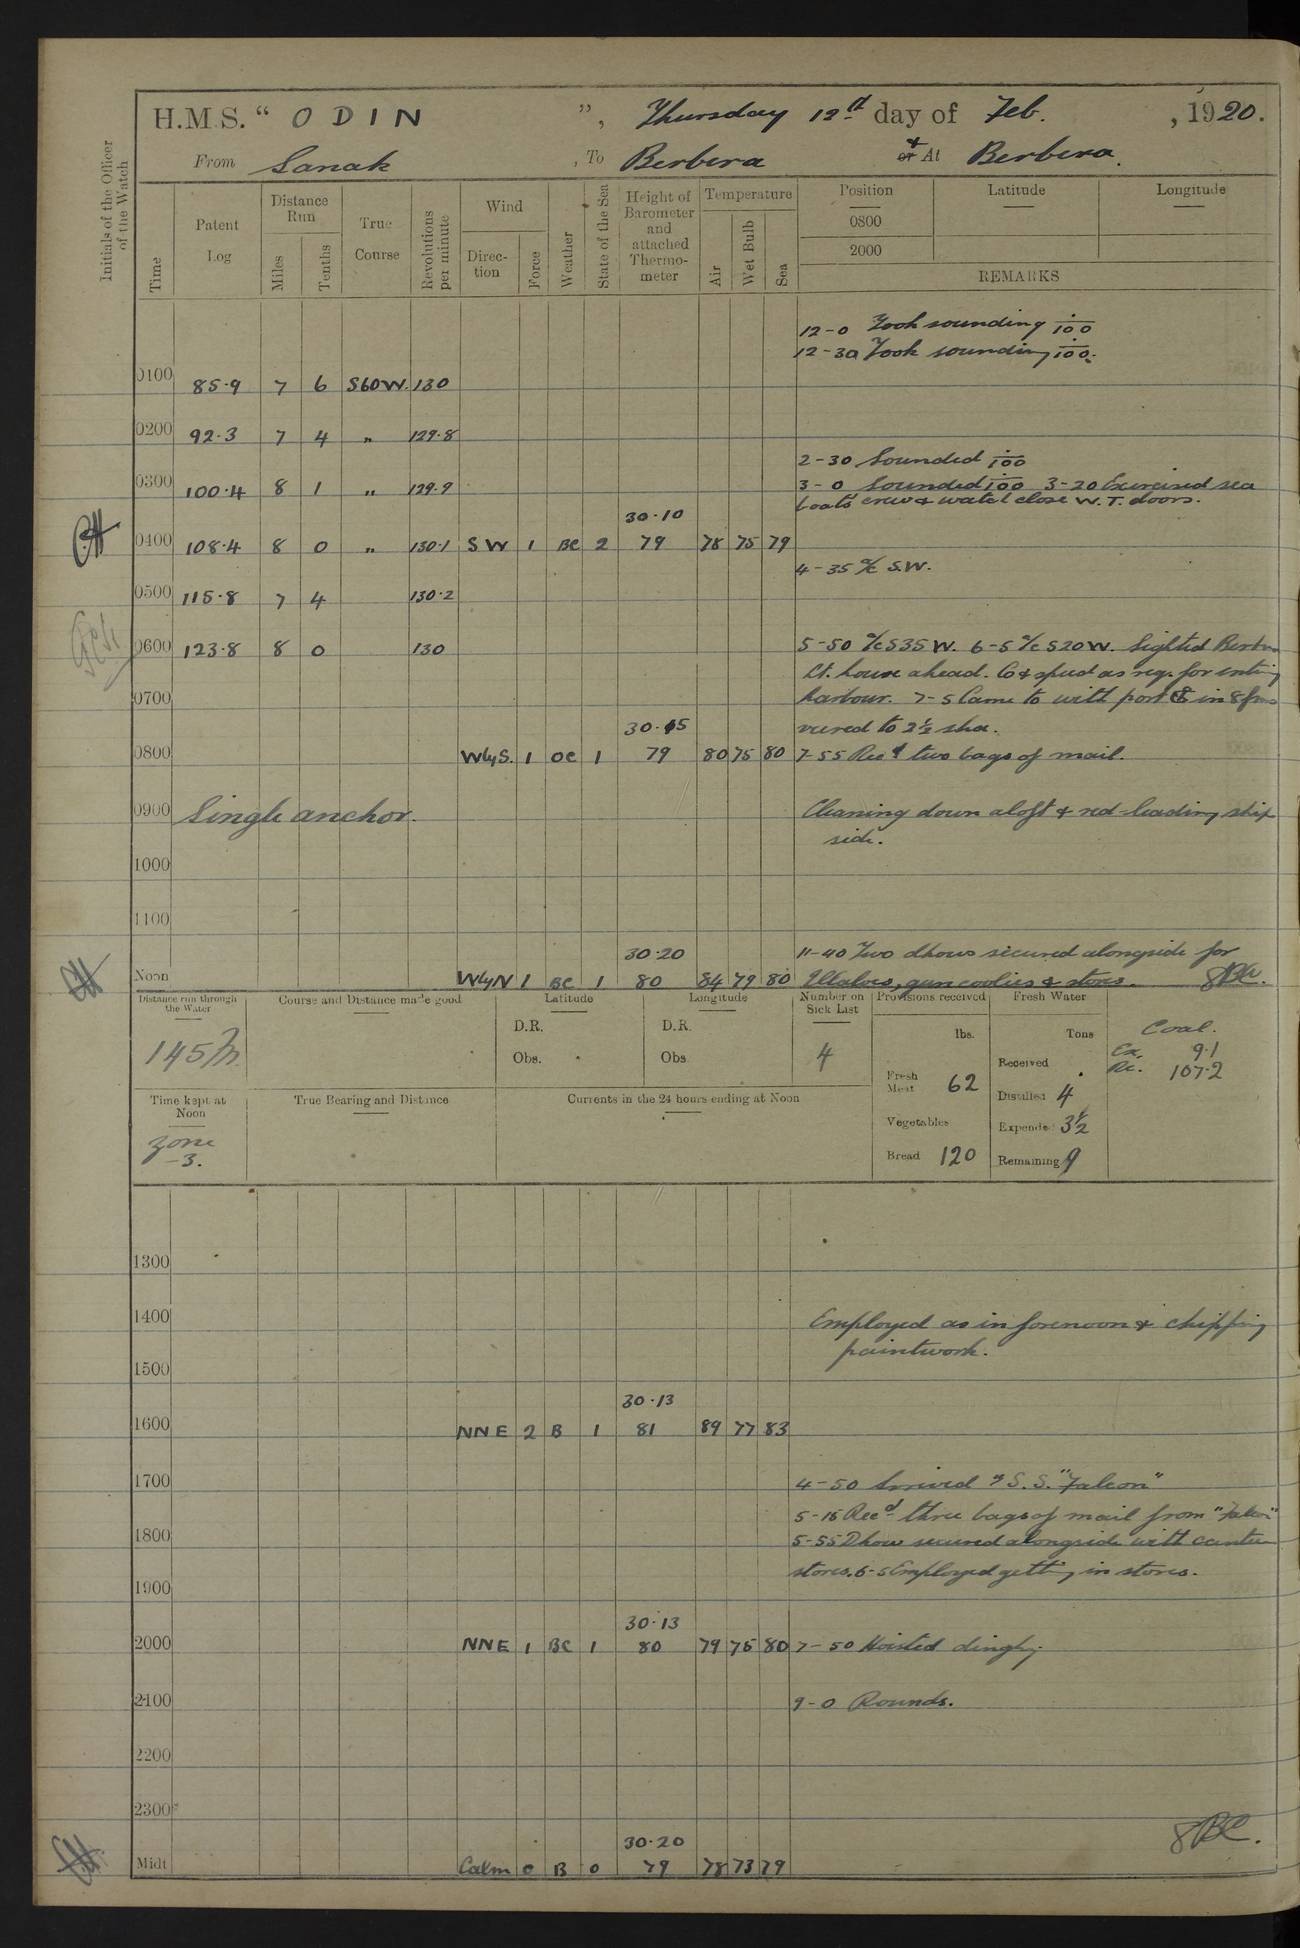 H.M.S. " ODIN ", Thursday 12th day of Feb., 1920.
From Sanak, To Berbera & or At Berbera.
Initials of the Officer of the Watch
Time
Patent Log
Distance Run
Miles
Tenths
True Course
Revolutions per minute
Wind
Direction
Force
Weather
State of the Sea
Height of Barometer and attached Thermometer
Temperature
Air
Wet Bulb
Sea
Position
Latitude
Longitude
0800
2000
REMARKS
12-0 Took sounding 100
12-30 Took sounding 100.
0100 85.9 7 6 S60W. 130
0200 92.3 7 4 " 129.8
2-30 Sounded 100
0300 100.4 8 1 " 129.9 3-0 Sounded 100 3-20 Exercised sea
boats crew & watch close W.T. doors.
30.10
0400 108.4 8 0 " 130.1 SW 1 BC 2 79 78 75 79
4-35 a/c S.W.
0500 115.8 7 4 130.2
0600 123.8 8 0 130 5-50 a/c S35W. 6-5 a/c S20W. Sighted Berbera
Lt. house ahead. Co & speed as req. for enting
0700 harbour. 7-5 Came to with port in 8 fms
30.15 veered to 2½ sha.
0800 WlyS. 1 OC 1 79 80 75 80 7-55 Recd two bags of mail.
0900 Single anchor. Cleaning down aloft & red-leading ship
side.
1000
1100
30.20 11-40 Two dhows secured alongside for
Noon WlyN 1 BC 1 80 84 79 80 coolies & stores.
Distance run through the Water
145
Course and Distance made good
Latitude
D.R.
Obs.
Longitude
D.R.
Obs
Number on Sick List
4
Provisions received
lbs.
Fresh Meat 62
Vegetables
Bread 120
Fresh Water
Tons
Received
Distilled 4
Expended 3½
Remaining 9
Coal.
Ex. 9.1
Re. 107.2
Time kept at Noon
zone
-3.
True Bearing and Distance
Currents in the 24 hours ending at Noon
1300
1400 Employed as in forenoon & chipping
paintwork.
1500
30.13
1600 NNE 2 B 1 81 89 77 83
1700 4-50 Arrived S.S. "Falcon"
5-15 Recd three bags of mail from "Falcon"
1800 5-55 Dhow secured alongside with canteen
stores. 6-5 Employed getting in stores.
1900
30.13
2000 NNE 1 BC 1 80 79 75 80 7-50 Hoisted dinghy.
2100 9-0 Rounds.
2200
2300
30.20
Midt Calm 0 B 0 79 78 73 79